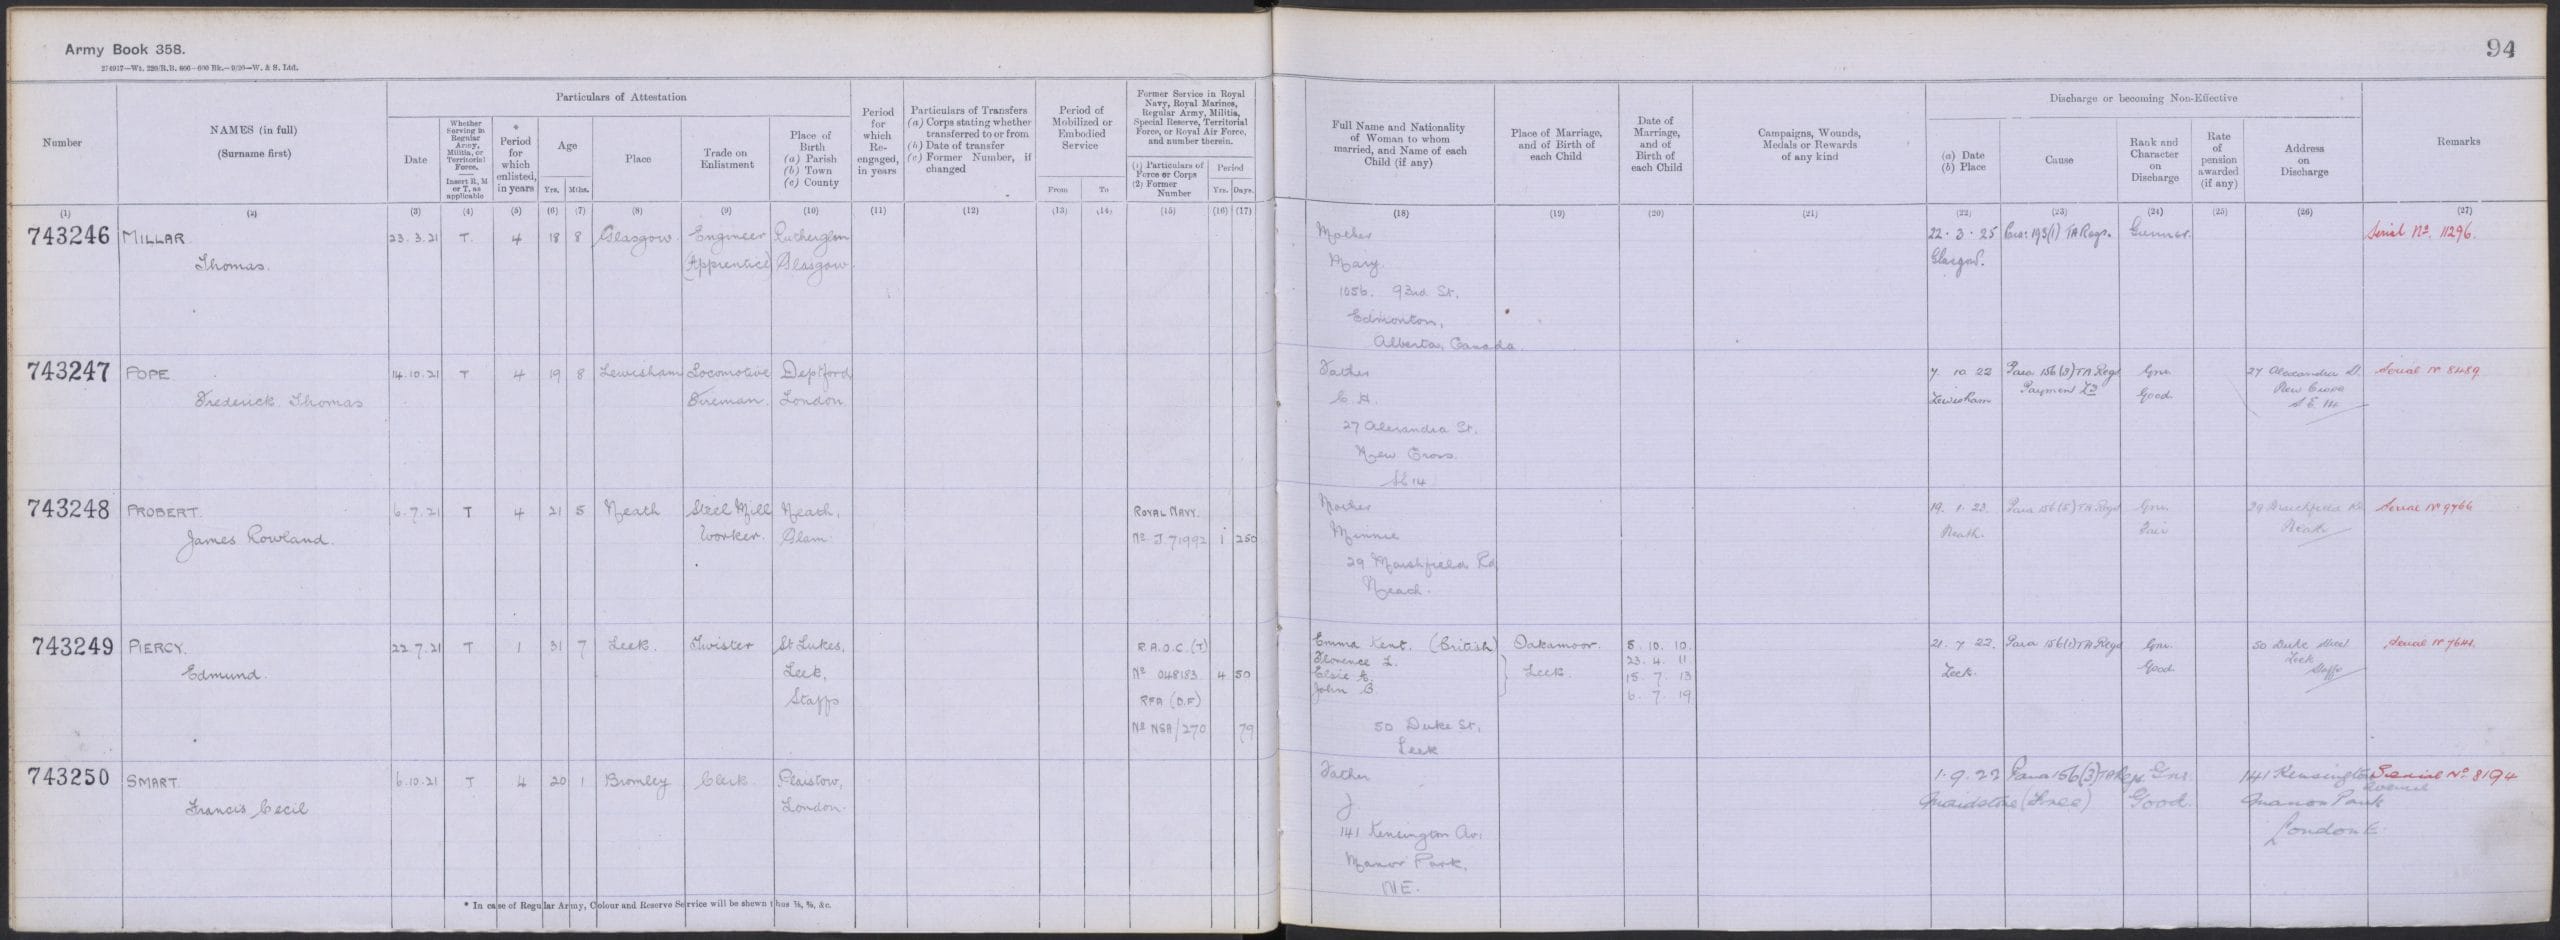 Army Book 358.
94
Number
NAMES (in full)
(Surname first)
Particulars of Attestation
Date
Whether Serving in Regular Army, Militia, or Territorial Force.
Insert R, M or T, as applicable
* Period for which enlisted, in years
Age
Yrs.
Mths.
Place
Trade on Enlistment
Place of Birth
(a) Parish
(b) Town
(c) County
Period for which Re-engaged, in years
Particulars of Transfers
(a) Corps stating whether transferred to or from
(b) Date of transfer
(c) Former Number, if changed
Period of Mobilized or Embodied Service
From
To
Former Service in Royal Navy, Royal Marines, Regular Army, Militia, Special Reserve, Territorial Force, or Royal Air Force, and number therein.
(1) Particulars of Force or Corps
(2) Former Number
Period
Yrs.
Days.
Full Name and Nationality of Woman to whom married, and Name of each Child (if any)
Place of Marriage, and of Birth of each Child
Date of Marriage, and of Birth of each Child
Campaigns, Wounds, Medals or Rewards of any kind
Discharge or becoming Non-Effective
(a) Date
(b) Place
Cause
Rank and Character on Discharge
Rate of pension awarded (if any)
Address on Discharge
Remarks
(1) (2) (3) (4) (5) (6) (7) (8) (9) (10) (11) (12) (13) (14) (15) (16) (17) (18) (19) (20) (21) (22) (23) (24) (25) (26) (27)
743246 MILLAR. 23.3.21 T. 4 18 8 Glasgow. Engineer Rutherglen Mother 22.3.25 193(1) TA Regs. Gunner. Serial No. 11296.
Thomas. (Apprentice) Glasgow. Mary. Glasgow.
1056. 93rd St,
Edmonton,
Alberta, Canada.
743247 POPE 14.10.21 T 4 19 8 Lewisham Locomotive Deptford Father 7 10 22 Para 156(3) TA Regs Gnr Serial No 8489
Frederick Thomas Fireman. London C.H. Lewisham Payment Good. 27 Alexandra St.
27 Alexandra St. New Cross
New Cross. S.E. 14
SE 14
743248 PROBERT. 6.7.21 T 4 21 5 Neath Steel Mill Neath, ROYAL NAVY. Mother 19.1.23. Para 156(5) TA Regs Gnr. Serial No 9766
James Rowland. Worker. Glam. No. J.71992 1 250 Minnie Neath. Fair Neath
29 Marshfield Rd
Neath.
743249 PIERCY. 22.7.21 T 1 31 7 Leek. Twister St Lukes, R.A.O.C. (T) Emma Kent. (British) Oakamoor. 5.10.10. 21.7.22. Para 156(1) TA Regs Gnr. 50 Duke Street Serial No 7641.
Edmund. Leek, No 048183 4 50 Florence L. 23.4.11 Leek
Staffs Elsie Leek. 15.7.13 Leek. Good Staffs
RFA (D.F) John 6.7.19
No NSA/270 79 50 Duke St,
Leek
743250 SMART. 6.10.21 T 4 20 1 Bromley Clerk. Plaistow, Father 1.9.22 Para 156(3) TA Regs. Gnr. 141 Kensington Serial No. 8194
Francis Cecil London. J. Maidstone (Free) Good. Avenue
141 Kensington Av. Manor Park
Manor Park, London E.
NE.
* In case of Regular Army, Colour and Reserve Service will be shewn thus